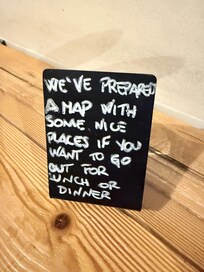 WE'VE PREPARED
A MAP WITH
SOME NICE
PLACES IF YOU
WANT TO GO
OUT FOR
LUNCH OR
DINNER